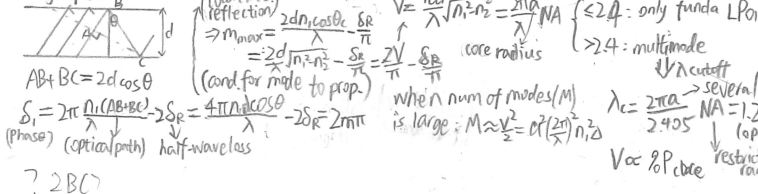 B
θ
d
A
C
AB+BC=2dcosθ
δ₁=2π n₁(AB+BC)/λ -2δR = 4πn₁dcosθ/λ -2δR=2mπ
(phase) (optical path) half-wave loss
? 2BC?
reflection)
⇒mmax= 2dn₁cosθc/λ - δR/π
= 2d/λ √n₁²-n₂² - δR/π = 2V/π - δR/π
(cond. for mode to prop.)
V= λ √n₁²-n₂² = 2πa/λ NA
core radius
when num of modes(M)
is large: M≈V²/2=a²(2π/λ)²n₁²Δ
<2.4: only funda LP01
>2.4: multimode
λcutoff
λc= 2πa/2.405 NA=1.2
several
V∝%Pcore